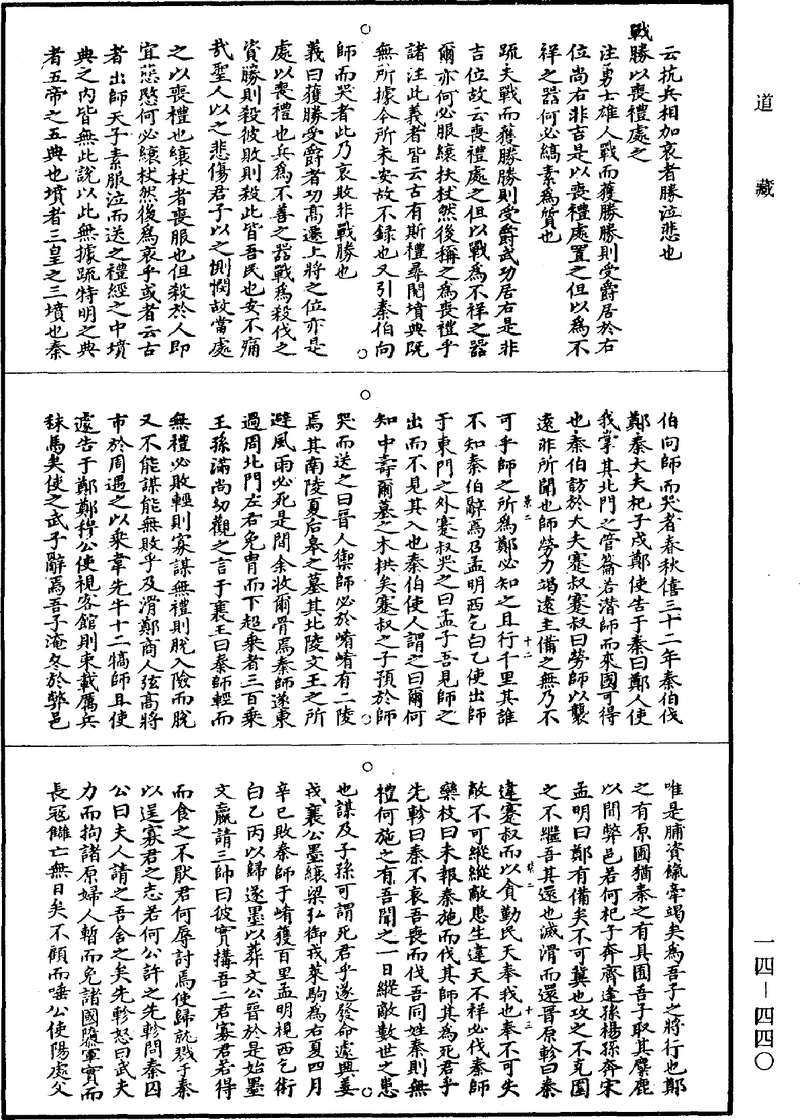 道藏
云抗兵相加哀者勝泣悲也
戰勝以喪禮處之
注勇士雄人戰而獲勝勝則受爵居於右
位尚右非吉是以喪禮處置之但以為不
祥之器何必縞素為質也
疏夫戰而獲勝勝則受爵武功居右是非
吉位故云喪禮處之但以戰為不祥之器
爾亦何必服縗扶杖然後稱之為喪禮乎
諸注此義者皆云古有斯禮尋閱墳典既
無所據今所未安故不録也又引秦伯向
師而哭者此乃哀敗非戰勝也
義曰獲勝受爵者功高還上將之位亦是
處以喪禮也兵為不善之器戰為殺伐之
資勝則殺彼敗則殺此皆吾民也安不痛
哉聖人以之悲傷君子以之惻憫故當處
之以喪禮也縗杖者喪服也但殺於人即
宜悲愍何必縗杖然後為哀乎或者云古
者出師天子素服泣而送之禮經之中墳
典之内皆無此說以此無據疏特明之典
者五帝之五典也墳者三皇之三墳也秦
伯向師而哭者春秋僖三十二年秦伯伐
鄭秦大夫杞子戍鄭使告于秦曰鄭人使
我掌其北門之管籥若潛師而來國可得
也秦伯訪於大夫蹇叔蹇叔曰勞師以襲
遠非所聞也師勞力竭遠主備之無乃不
可乎師之所為鄭必知之且行千里其誰
不知秦伯辭焉召孟明西乞白乙使出師
于東門之外蹇叔哭之曰孟子吾見師之
出而不見其入也秦伯使人謂之曰爾何
知中壽爾墓之木拱矣蹇叔之子預於師
哭而送之曰晉人禦師必於崤崤有二陵
焉其南陵夏后皋之墓其北陵文王之所
避風雨必死是間余收爾骨焉秦師遂東
過周北門左右免冑而下超乘者三百乘
王孫滿尚幼觀之言于襄王曰秦師輕而
無禮必敗輕則寡謀無禮則脫入險而脫
又不能謀能無敗乎及滑鄭商人弦高將
市於周遇之以乘韋先牛十二犒師且使
遽告于鄭鄭穆公使視客館則束載厲兵
秣馬矣使之武子辭焉吾子淹久於弊邑
唯是脯資餼牽竭矣為吾子之將行也鄭
之有原圃猶秦之有具囿吾子取其麋鹿
以閒弊邑若何杞子奔齊逢孫楊孫奔宋
孟明曰鄭有備矣不可冀也攻之不克圍
之不繼吾其還也滅滑而還晉原軫曰秦
違蹇叔而以貪勤民天奉我也奉不可失
敵不可縱縱敵患生違天不祥必伐秦師
欒枝曰未報秦施而伐其師其為死君乎
先軫曰秦不哀吾喪而伐吾同姓秦則無
禮何施之有吾聞之一日縱敵數世之患
也謀及子孫可謂死君乎遂發命遽興姜
戎襄公墨縗梁弘御戎萊駒為右夏四月
辛巳敗秦師于崤獲百里孟明視西乞術
白乙丙以歸遂墨以葬文公晉於是始墨
文嬴請三帥曰彼實搆吾二君寡君若得
而食之不厭君何辱討焉使歸就戮于秦
以逞寡君之志若何公許之先軫問秦囚
公曰夫人請之吾舍之矣先軫怒曰武夫
力而拘諸原婦人暫而免諸國隳軍實而
長寇讎亡無日矣不顧而唾公使陽處父
一四—四四〇